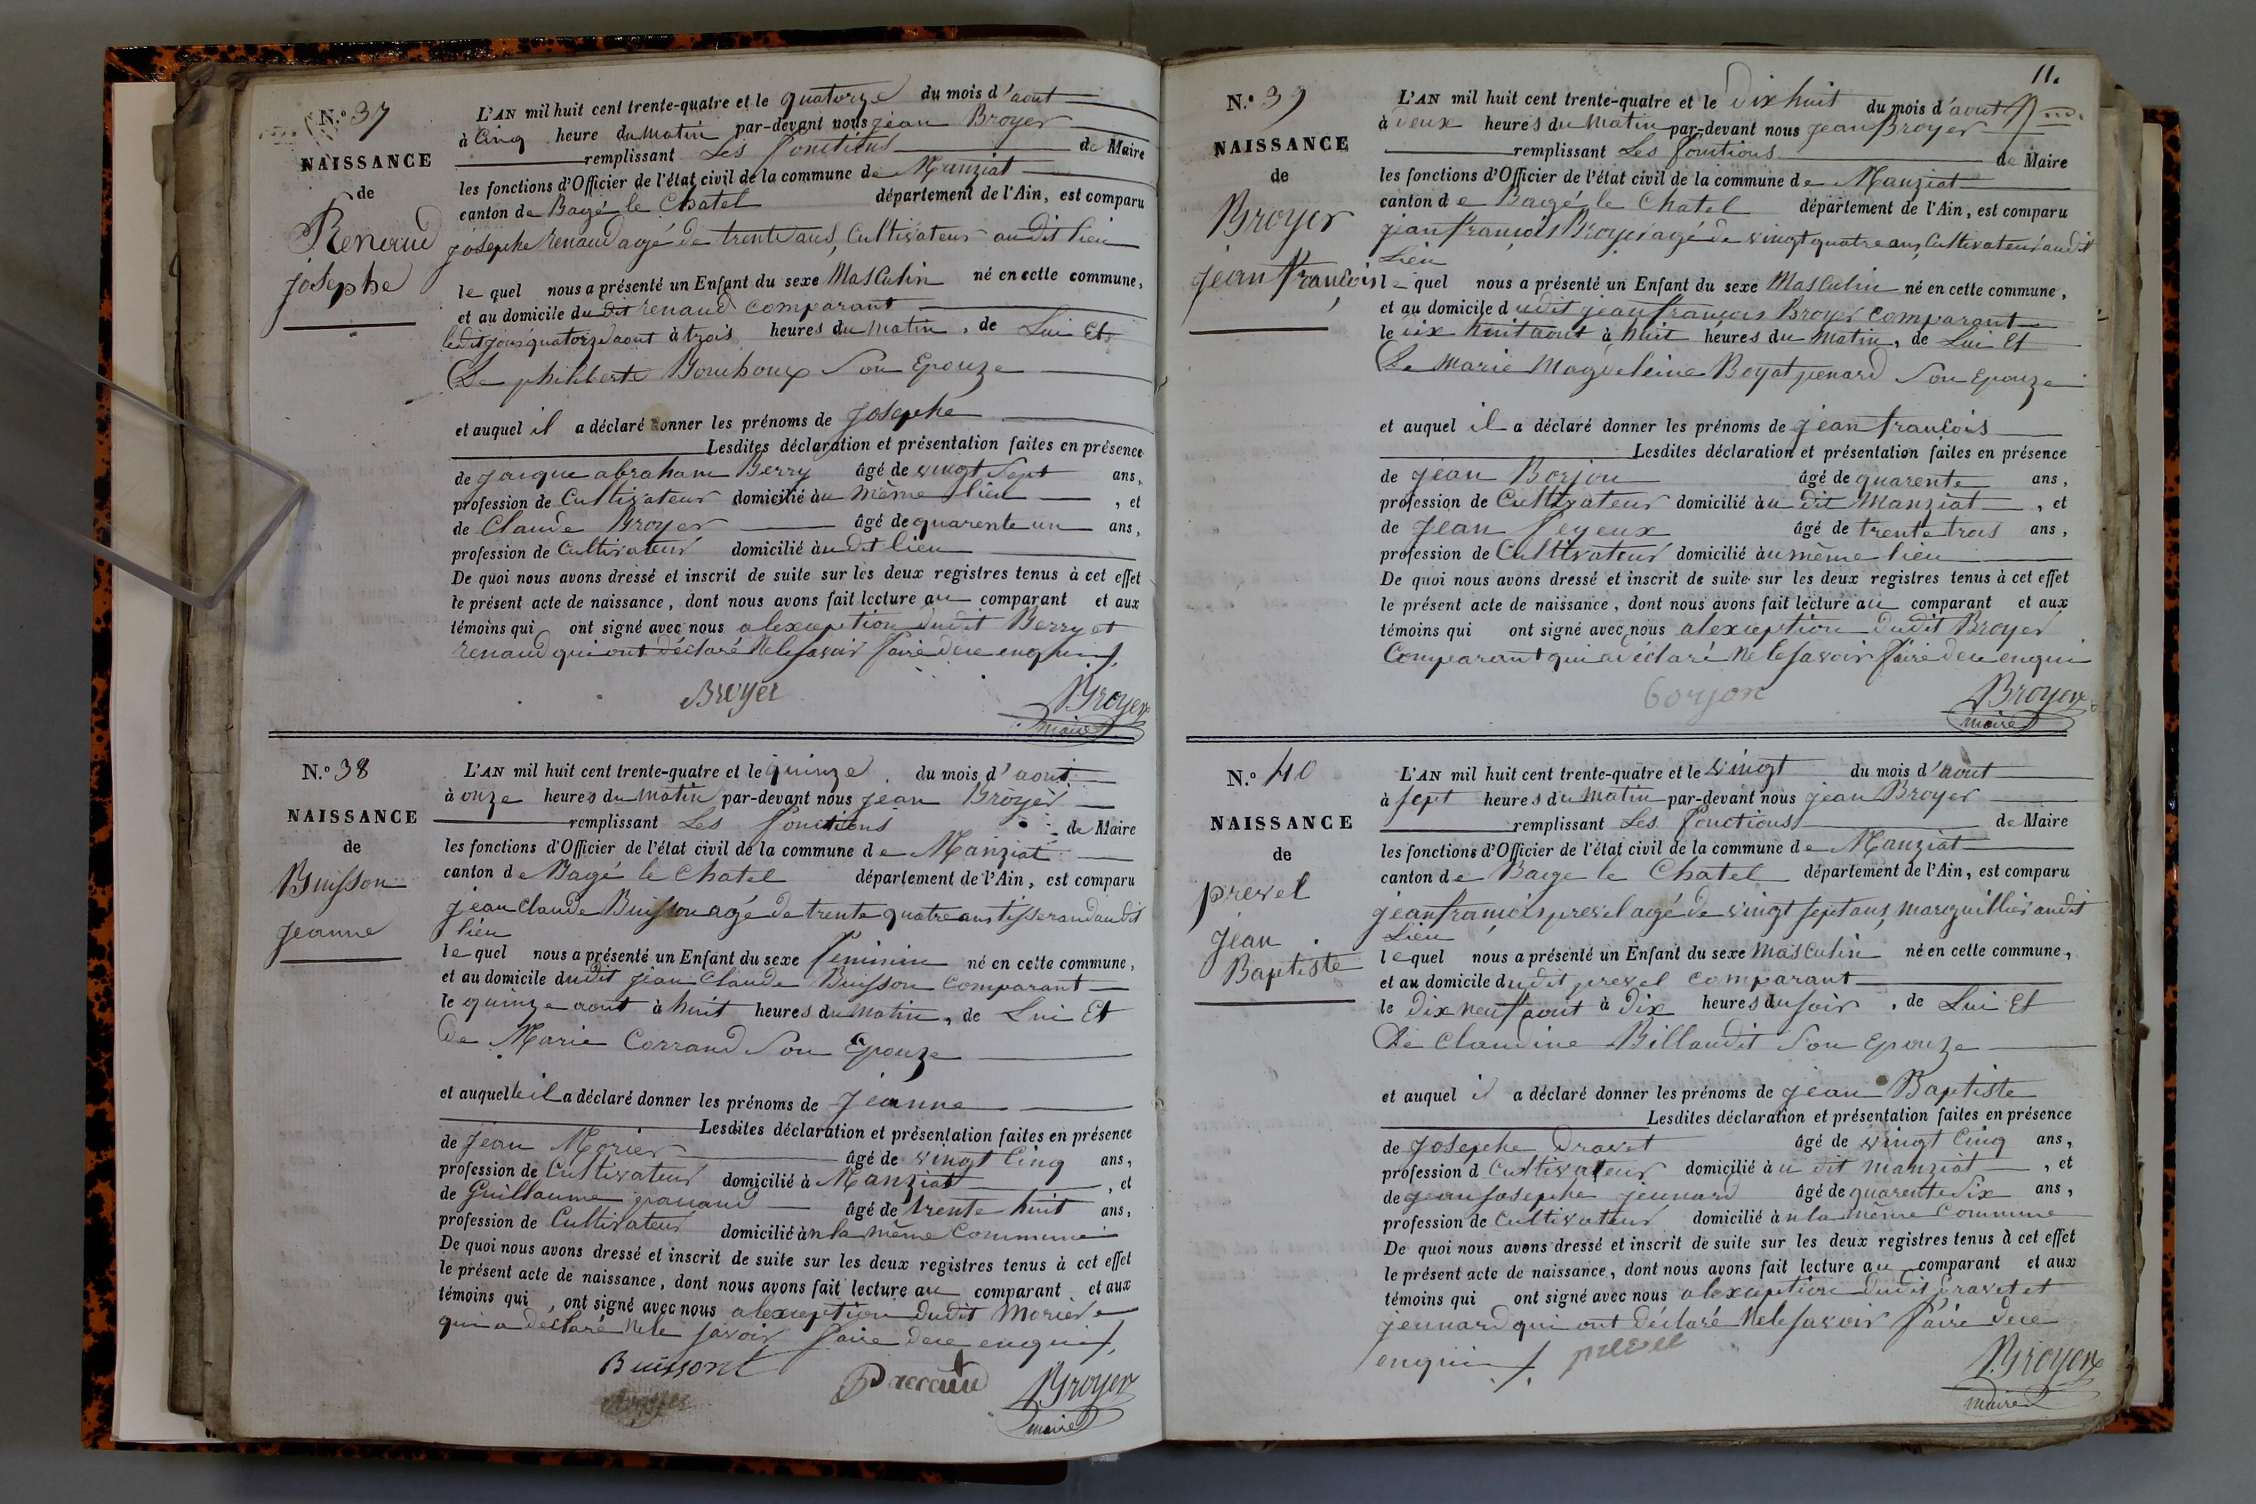 N.º 37
NAISSANCE
de
Renaud
josephe
L'AN mil huit cent trente-quatre et le quatorze du mois d'aout
à Cinq heure du matin par-devant nous jean Broyer
remplissant Les fonctions de Maire
les fonctions d'Officier de l'état civil de la commune de Manziat
canton de Bagé le Chatel département de l'Ain, est comparu
josephe renaud agé de trente ans, Cultivateur audit lieu
le quel nous a présenté un Enfant du sexe Masculin né en cette commune,
et au domicile du dit renaud comparant
ledit jour quatorze aout à trois heures du matin, de Lui Et
De philiberte Bouchoux Son Epouze
et auquel il a déclaré donner les prénoms de Josephe
Lesdites déclaration et présentation faites en présence
de jacque abraham Berry âgé de vingt Sept ans,
profession de Cultivateur domicilié au même lieu, et
de Claude Broyer âgé de quarente un ans,
profession de Cultivateur domicilié audit lieu
De quoi nous avons dressé et inscrit de suite sur les deux registres tenus à cet effet
le présent acte de naissance, dont nous avons fait lecture au comparant et aux
témoins qui ont signé avec nous alexception dudit Berry et
renaud qui ont déclaré Ne le savoir faire de ce enquis
Broyer
Broyer
maire
N.º 38
NAISSANCE
de
Buisson
jeanne
L'AN mil huit cent trente-quatre et le quinze du mois d'aout
à onze heures du matin par-devant nous jean Broyer
remplissant Les fonctions de Maire
les fonctions d'Officier de l'état civil de la commune de Manziat
canton de Bagé le Chatel département de l'Ain, est comparu
jean Claude Buisson agé de trente quatre ans tisserand audit
lieu
le quel nous a présenté un Enfant du sexe feminin né en cette commune,
et au domicile dudit jean Claude Buisson comparant
le quinze aout à huit heures du matin, de Lui Et
de Marie Corrand Son Epouze
et auquelle il a déclaré donner les prénoms de jeanne
Lesdites déclaration et présentation faites en présence
de jean Morier âgé de vingt Cinq ans,
profession de Cultivateur domicilié à Manziat, et
de Guillaume âgé de trente huit ans,
profession de Cultivateur domicilié à la même Commune
De quoi nous avons dressé et inscrit de suite sur les deux registres tenus à cet effet
le présent acte de naissance, dont nous avons fait lecture au comparant et aux
témoins qui, ont signé avec nous alexception dudit Morier
qui a déclaré Ne le savoir faire de ce enquis
Buisson
Broyer
maire
11.
N.º 39
NAISSANCE
de
Broyer
jean francois
L'AN mil huit cent trente-quatre et le Dix huit du mois d'aout
à deux heures du Matin par-devant nous jean Broyer
remplissant Les fonctions de Maire
les fonctions d'Officier de l'état civil de la commune de Manziat
canton de Bagé le Chatel département de l'Ain, est comparu
jean francois Broyer agé de vingt quatre ans Cultivateur audit
Lieu
le quel nous a présenté un Enfant du sexe Masculin né en cette commune,
et au domicile dudit jean francois Broyer comparant
le dix huit aout à huit heures du Matin, de Lui Et
De Marie Magdeleine Boyat penard Son Epouze
et auquel il a déclaré donner les prénoms de jean francois
Lesdites déclaration et présentation faites en présence
de jean Borjon âgé de quarente ans,
profession de Cultivateur domicilié au dit Manziat, et
de jean feyeux âgé de trente trois ans,
profession de Cultivateur domicilié au même lieu
De quoi nous avons dressé et inscrit de suite sur les deux registres tenus à cet effet
le présent acte de naissance, dont nous avons fait lecture au comparant et aux
témoins qui ont signé avec nous alexception dudit Broyer
Comparant qui a déclaré Ne le savoir faire de ce enqui
borjon
Broyer
maire
N.º 40
NAISSANCE
de
prevel
jean
Baptiste
L'AN mil huit cent trente-quatre et le vingt du mois d'aout
à sept heures du Matin par-devant nous jean Broyer
remplissant Les fonctions de Maire
les fonctions d'Officier de l'état civil de la commune de Manziat
canton de Bage le Chatel département de l'Ain, est comparu
jean francois prevel agé de vingt sept ans, marguillier audit
Lieu
le quel nous a présenté un Enfant du sexe Masculin né en cette commune,
et au domicile dudit prevel comparant
le Dix neuf aout à Dix heures du soir, de Lui Et
De Claudine Billaudit Son Epouze
et auquel il a déclaré donner les prénoms de jean Baptiste
Lesdites déclaration et présentation faites en présence
de josephe Dravet âgé de vingt Cinq ans,
profession d Cultivateur domicilié au dit manziat, et
de jean josephe jeunard âgé de quarente Six ans,
profession de Cultivateur domicilié à la même Commune
De quoi nous avons dressé et inscrit de suite sur les deux registres tenus à cet effet
le présent acte de naissance, dont nous avons fait lecture au comparant et aux
témoins qui ont signé avec nous alexception dudit Dravet et
jeunard qui ont déclaré Ne le savoir faire de ce
enquis
prevel
Broyer
maire